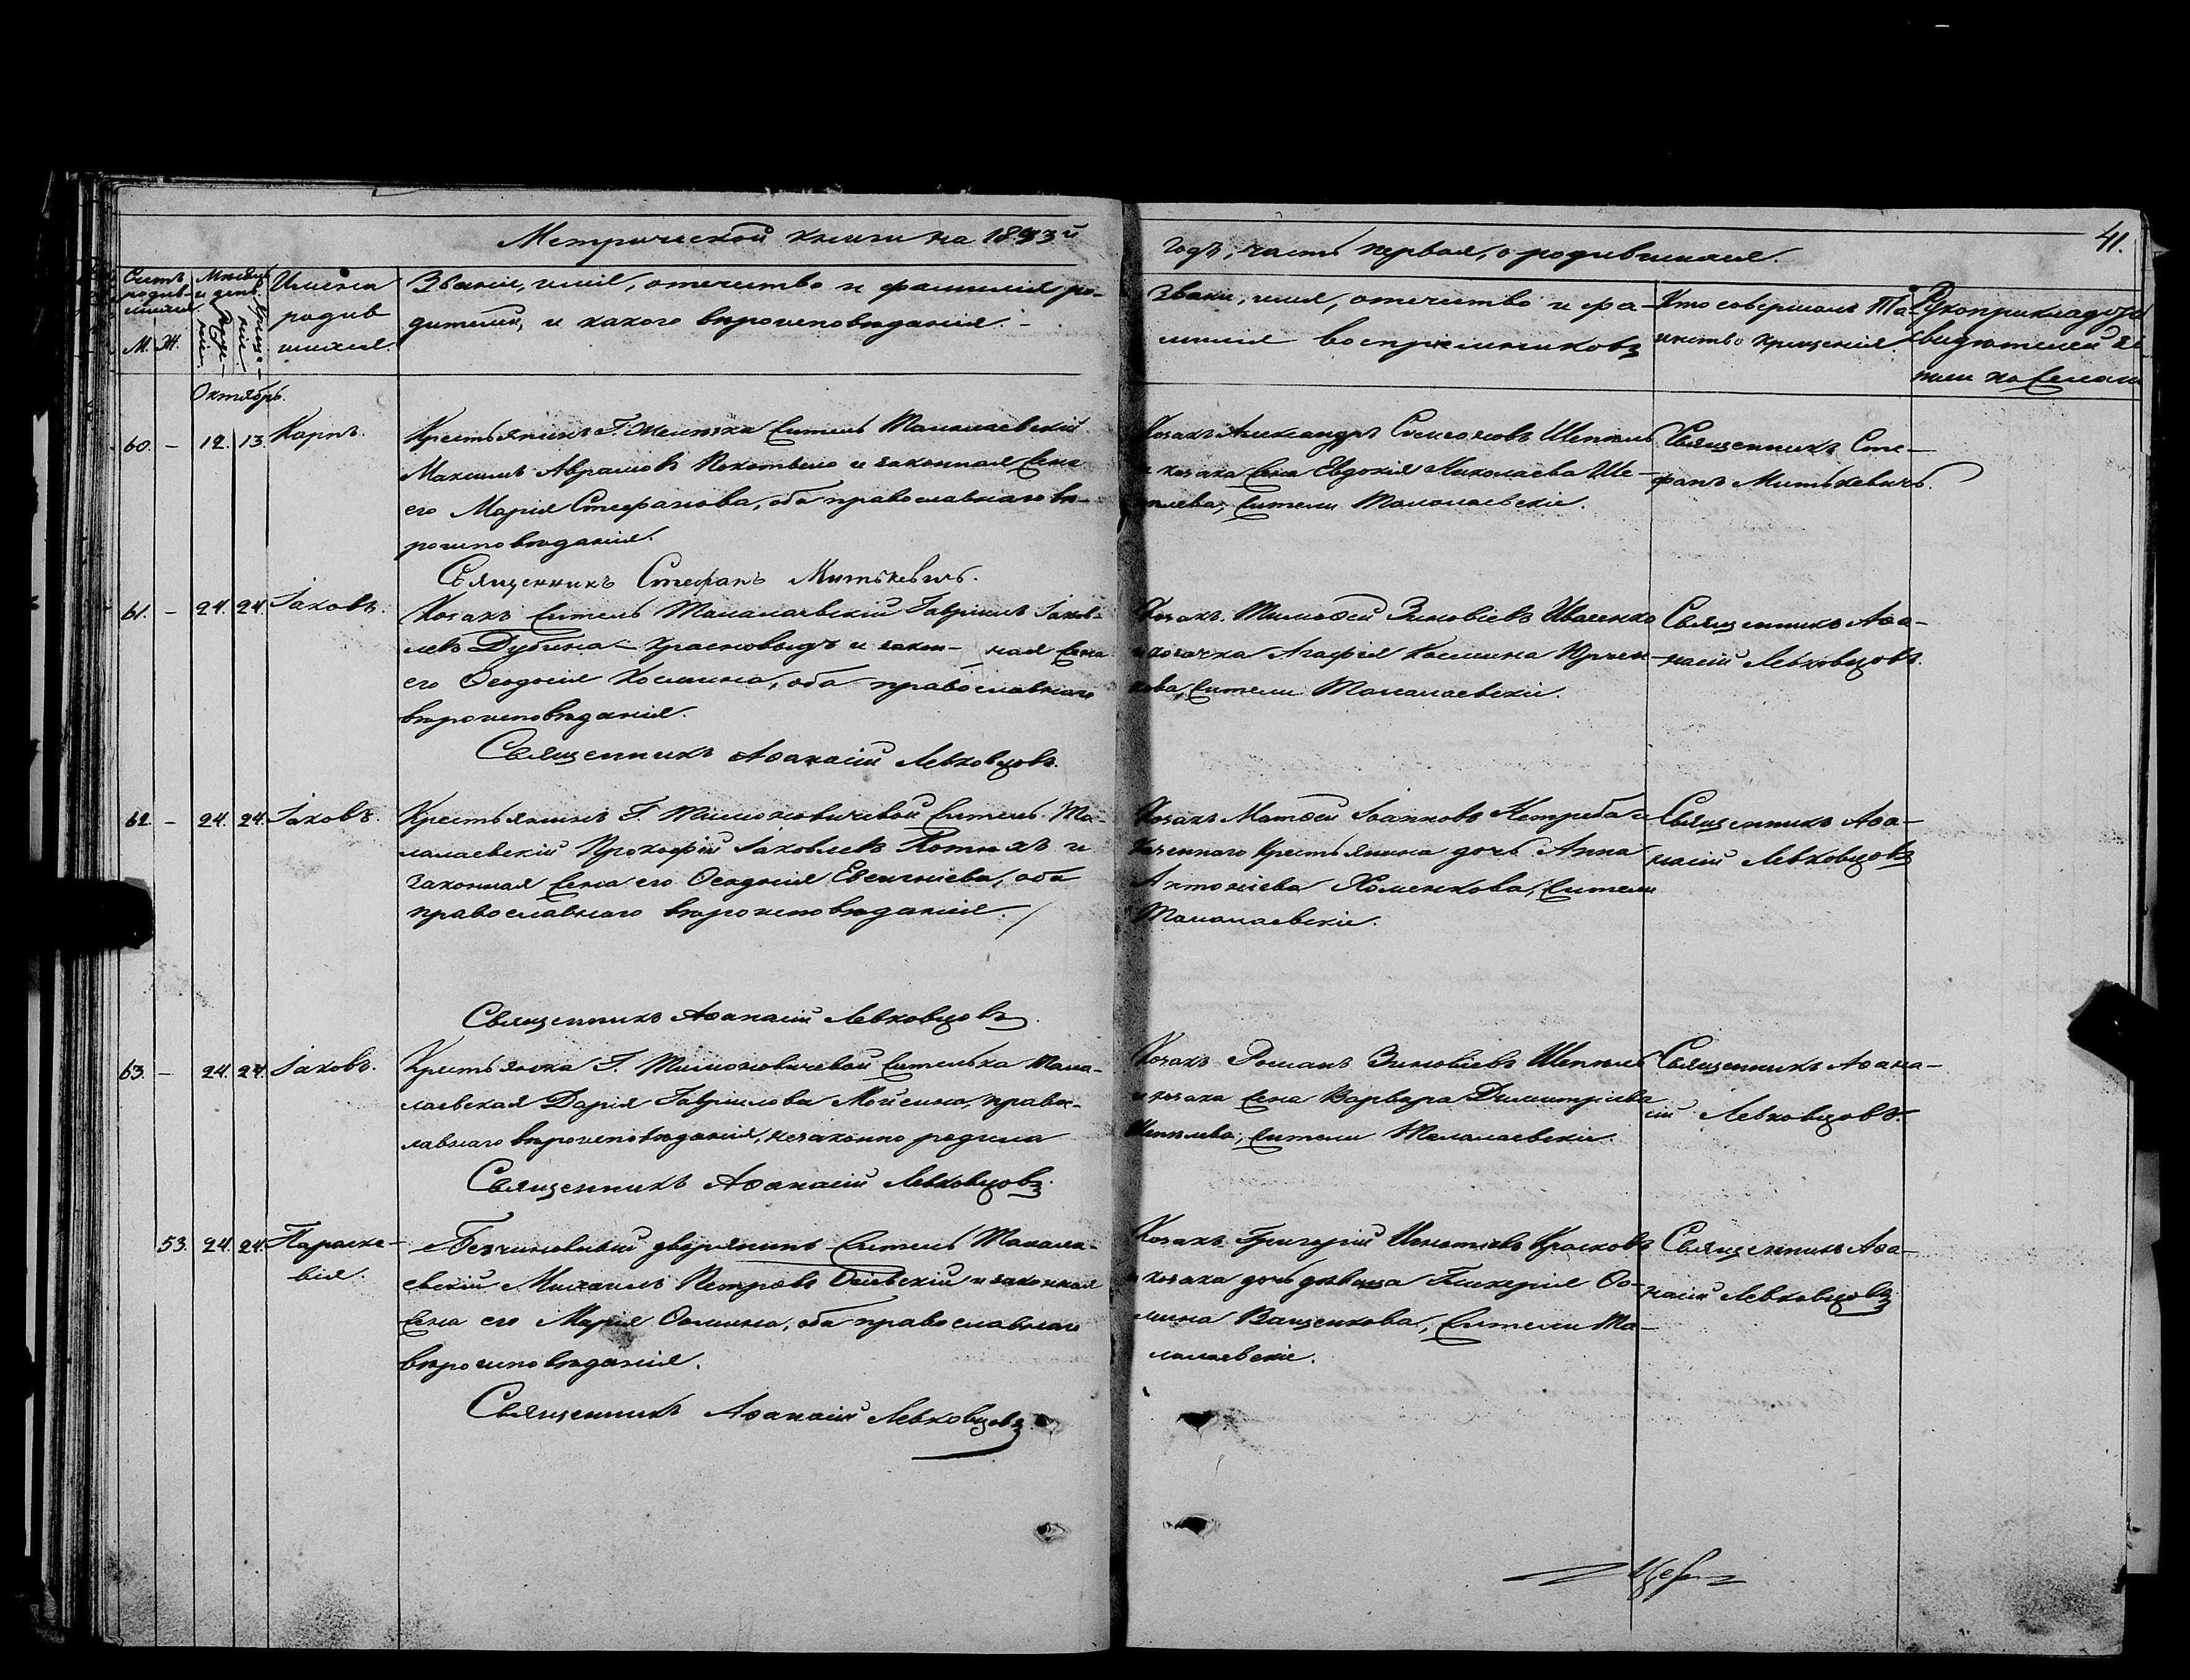 Метрической книги на 1893й
годъ, часть первая, о родившихся.
41.
Счетъ родив-шихся. М. Ж.
Мѣсяцъ и день. Рожде-нія. Креще-нія.
Имена
родив
шихся.
Званіе, имя, отечество и фамилія ро-
дителей, и какого вѣроисповѣданія.
Званіе, имя, отечество и фа-
милія воспріемниковъ
Кто совершалъ Та-
инство крещенія.
Рукоприкладство
свидѣтелей за-
писи по желан
Октябрь.
60. - 12. 13. Карпъ.
Крестьянинъ Г. житель Талалаевскій
Максимъ Аврамовъ Покотыло и законная жена
его Марія Стефанова, оба православнаго вѣ-
роисповѣданія.
Священникъ Стефанъ Митькевичъ.
Козакъ Александръ Симоновъ Шепель
и козака жена Евдокія Николаева Ше-
пелева, жители Талалаевскіе.
Священникъ Сте-
фанъ Митькевичъ.
61. - 24. 24. Іаковъ.
Козакъ житель Талалаевскій Гавріилъ Іаков-
левъ Дубина-Красновыдъ и закон- ная жена
его Ѳеодосія Космина, оба православнаго
вѣроисповѣданія.
Священникъ Аѳанасій Левковцовъ.
Козакъ Тимоѳей Зиновіевъ Иваненко
и козачка Агафія Космина Юрчен-
кова, жители Талалаевскіе.
Священникъ Аѳа-
насій Левковцовъ.
62. - 24. 24. Іаковъ.
Крестьянинъ Г. Тимоновичевой житель Та-
лалаевскій Прокофій Іаковлевъ и
законная жена его Ѳеодосія Евсигніева, оба
православнаго вѣроисповѣданія.
Священникъ Аѳанасій Левковцовъ.
Козакъ Матѳей Іоанновъ Нетреба и
Казеннаго крестьянина дочь Анна
Антоніева Хоменкова, жители
Талалаевскіе.
Священникъ Аѳа-
насій Левковцовъ
63. - 24. 24. Іаковъ.
Крестьянка Г. Тимоновичевой жителька Тала-
лаевская Дарія Гавріилова Мойсина, правос-
лавнаго вѣроисповѣданія, незаконно родила
Священникъ Аѳанасій Левковцовъ.
Козакъ Романъ Зиновіевъ Шепель
и козака жена Варвара Димитріева
Шепелева, жители Талалаевскіе.
Священникъ Аѳана-
сій Левковцовъ.
53. 24. 24. Параске-
вія.
Безчиновный дворянинъ житель Талала-
евскій Михаилъ Петровъ и законная
жена его Марія Ѳомина, оба православнаго
вѣроисповѣданія.
Священникъ Аѳанасій Левковцовъ.
Козакъ Григорій Игнатіевъ
и козака дочь дѣвица Гликерія Ѳо-
мина Ващенкова, жители Та-
лалаевскіе.
Священникъ Аѳа-
насій Левковцовъ